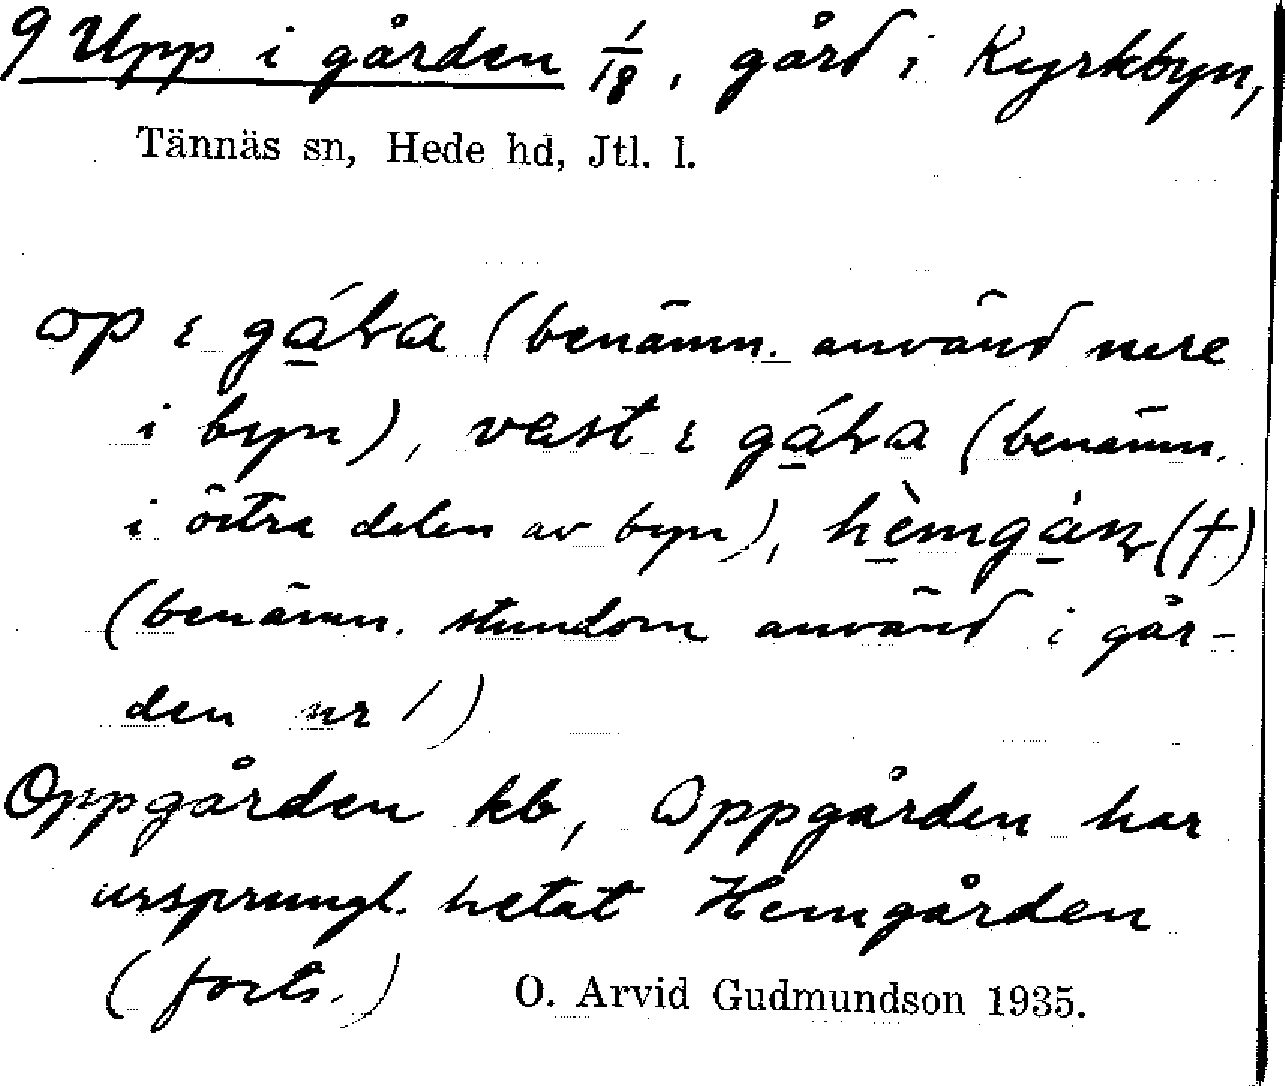 9 Upp i gården 1/18, gård i Kyrkbyn,
Tännäs sn, Hede hd, Jtl. l.
(benämn. använd nere
i byn), (benämn.
i östra delen av byn), (†)
(benämn. stundom använd i går-
den nr 1)
Oppgården kb, Oppgården har
ursprungl. hetat Hemgården
(forts.) O. Arvid Gudmundson 1935.